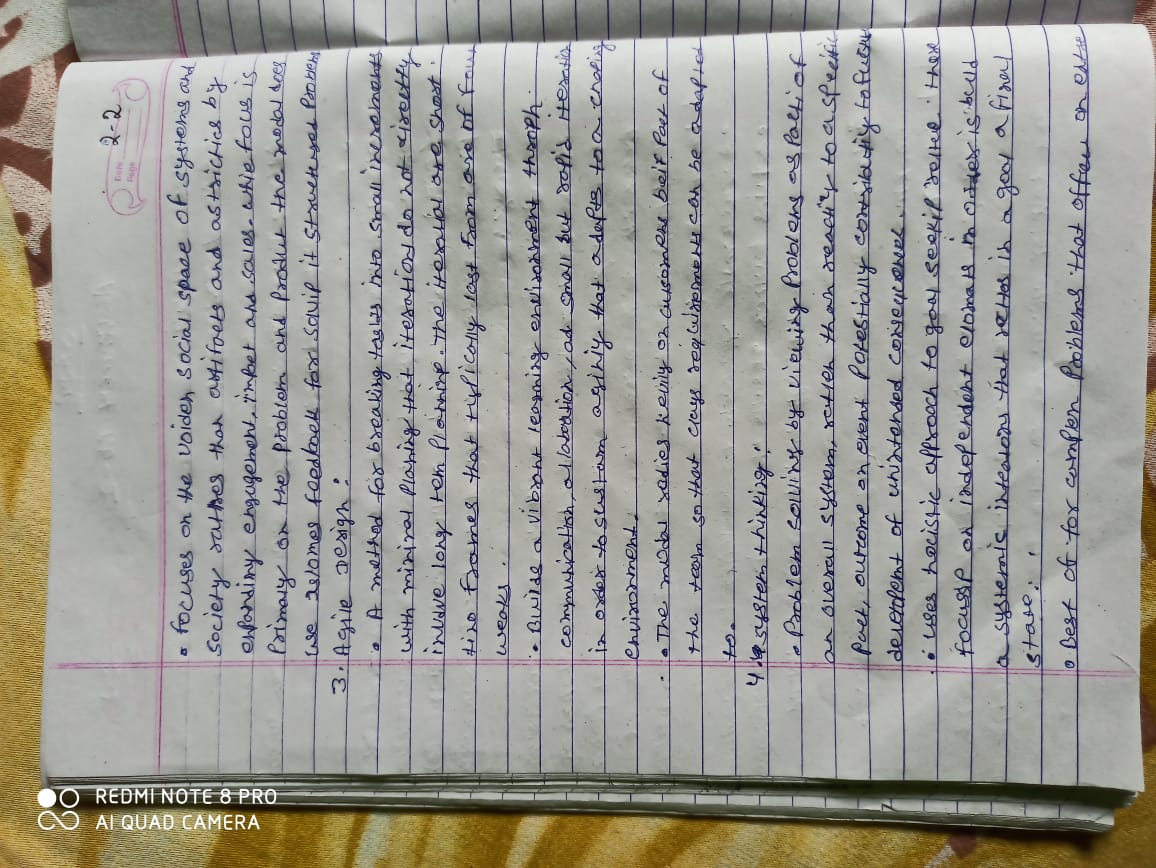 REDMI NOTE 8 PRO
AI QUAD CAMERA
Date
Page
2-2
• focuses on the voiden social space of systems and
society rathes than artifaets and astrictics by
enpandiny engagement, impet and sales. whie fous is
Primaly on the Problem and Produt the modal does
use feedback for it structured Problem
3. Agile Design :
• A method for breaking tasks into small increments
with miniral Planing that iteration do not directly
invlve long tem Planning. The are short
frames that typically last from of four
weaks.
• Builds a vibrant learning environment throph
communication, ollaboration, ad small but rapid iteration
in order to sustam aginiy that adapts to a chaping
environment.
• The modal hevily on customers beif Part of
the team so that requirements can be adapted
to.
4. system thinking :
• Problem solving by viewing Problems as Parti of
an overall system, rather than to a specific
Part, outcome on event Potestially to future
of unintended
• uses hocistic approach to goal seekip there
focussp on independent in order is build
a systemic that in a goal a finel
state.
• Best of for complen Problems that offen on